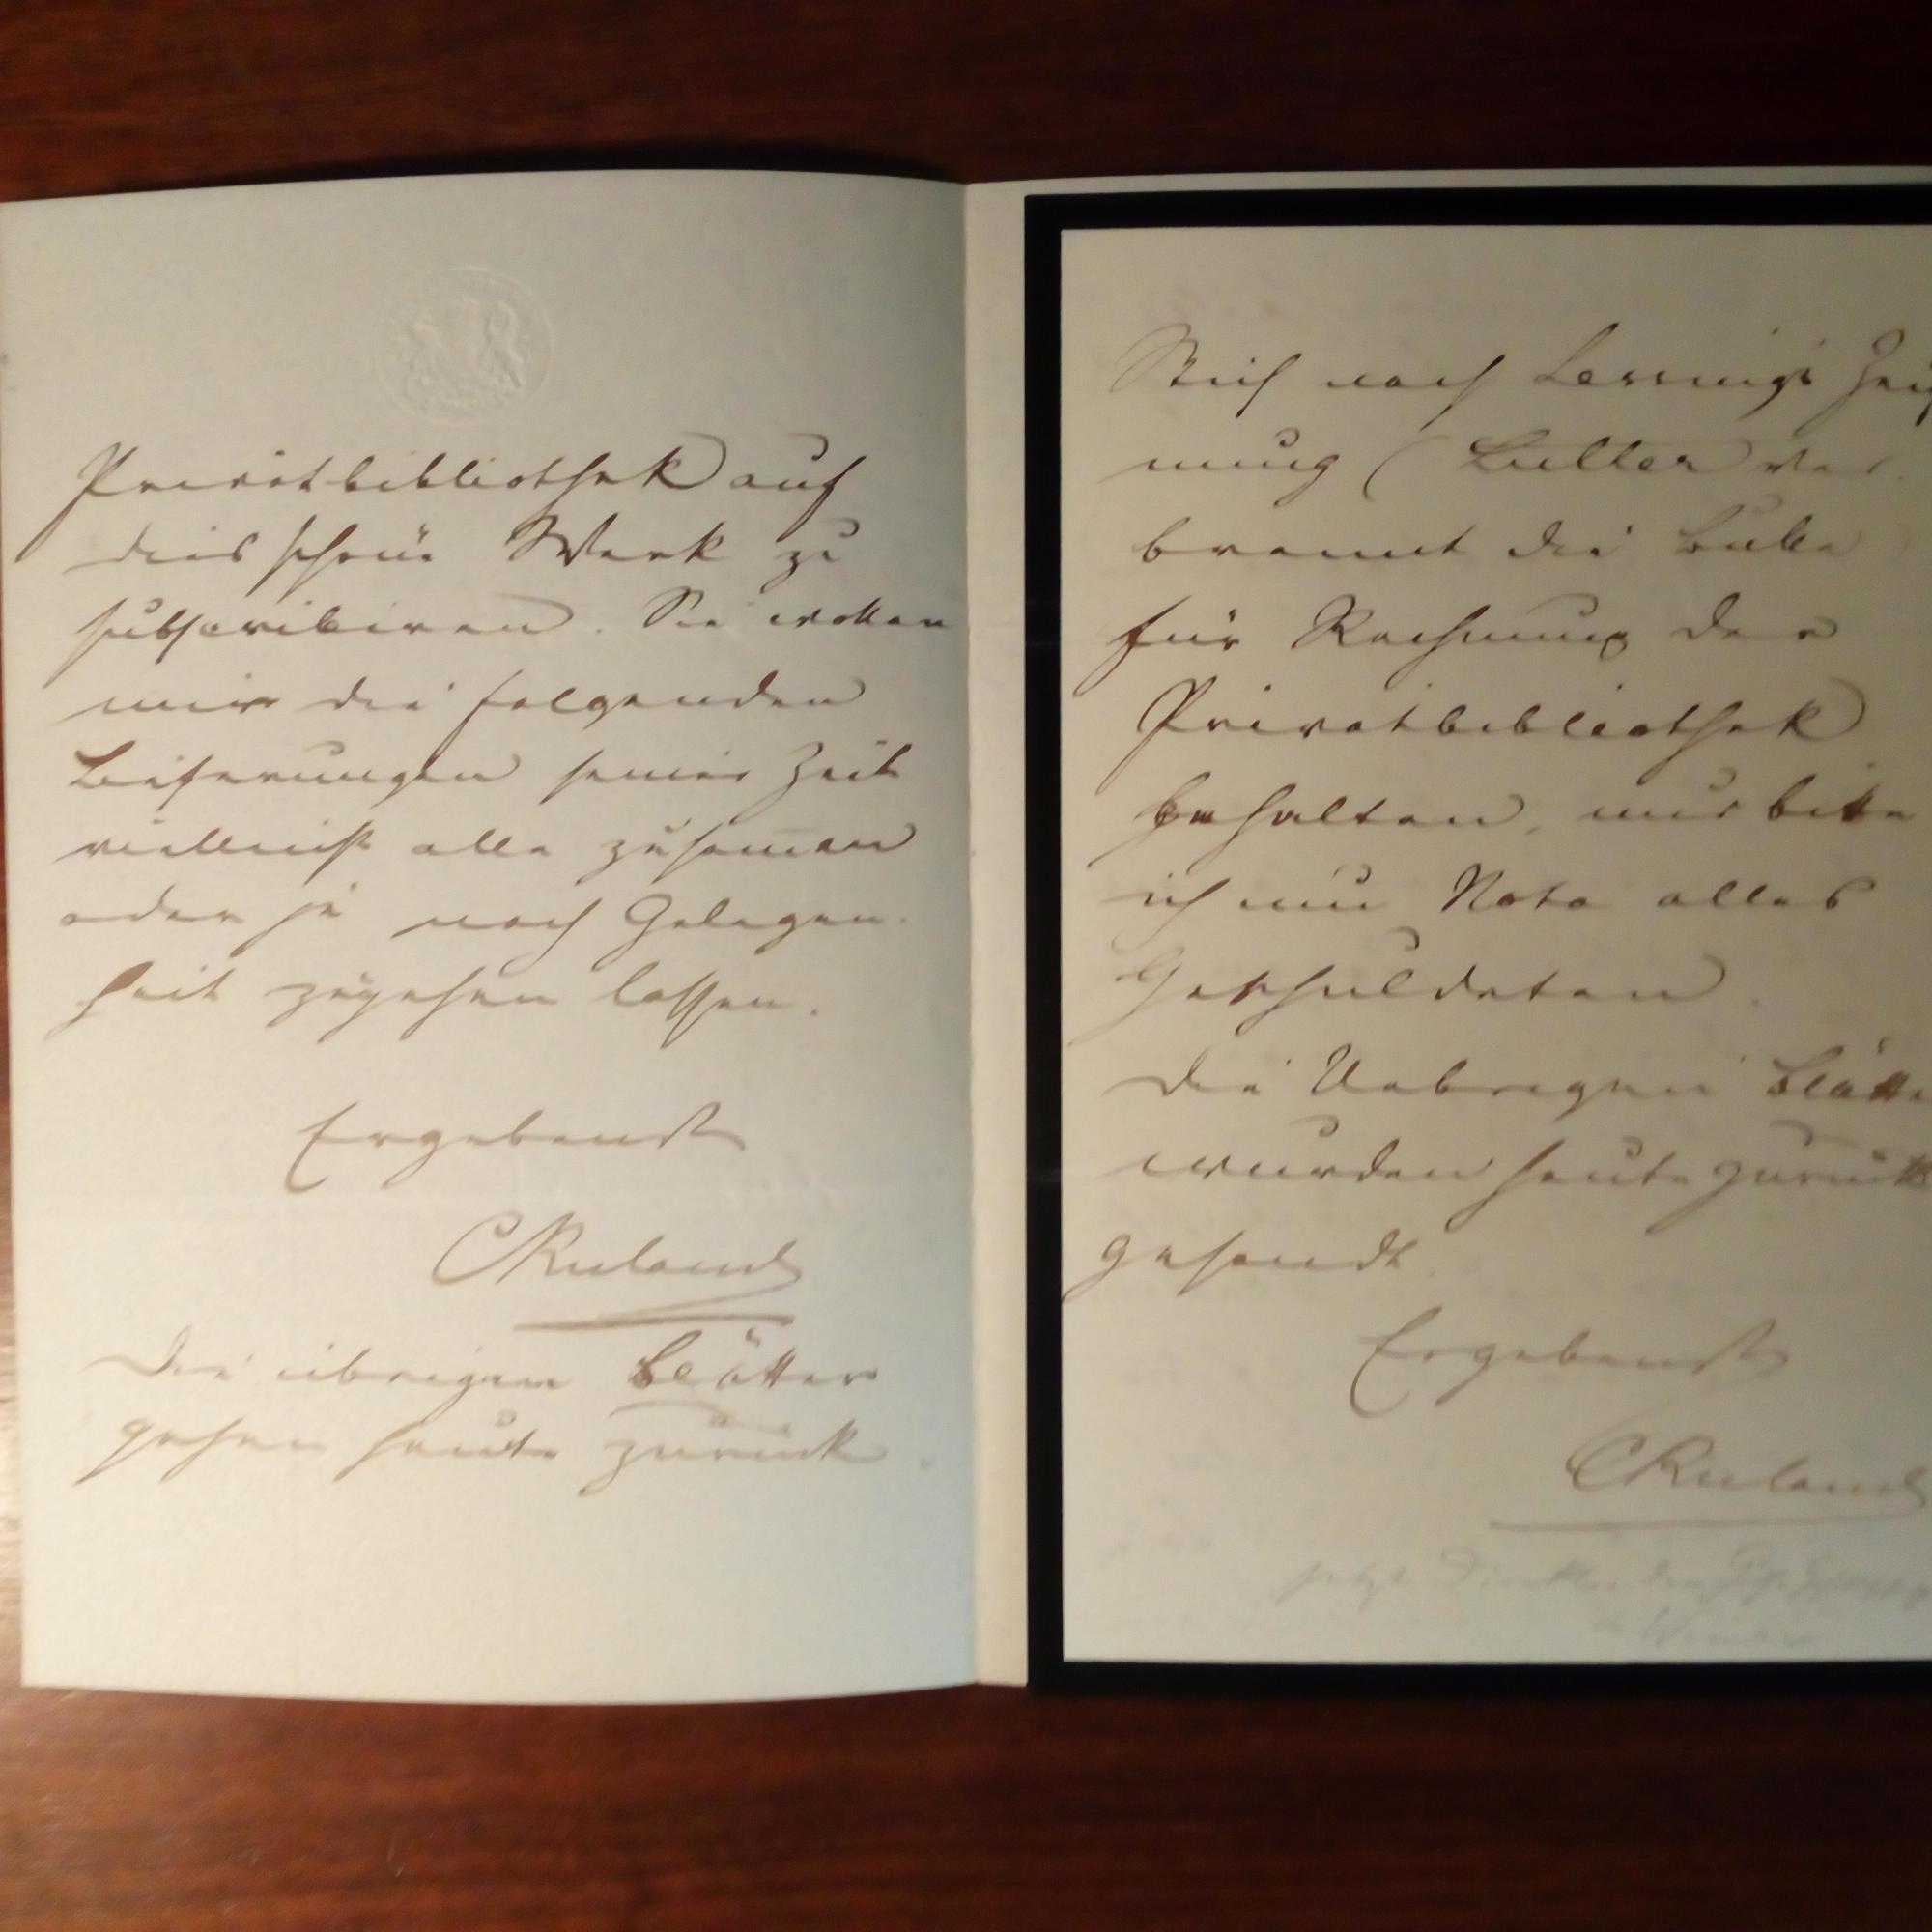 Privatbibliothek auf
dies schöne Werk zu
subscribiren. Sie wollen
mir die folgenden
Lieferungen seiner Zeit
vielleicht alle zusammen
oder je nach Gelegen-
heit zugehen lassen.
Ergebenst
CRuland
Die übrigen Blätter
gehen heute zurück.
Stich nach Lessing's Zeich
nung (Luther ver-
brennt die Bulle)
für Rechnung der
Privatbibliothek
behalten, nur bitte
ich um Nota alles
Geschuldeten.
Die Uebrigen Blätte
wurden heute zurück
gesandt.
Ergebenst
CRuland
jetzt Direktor des
in Weimar